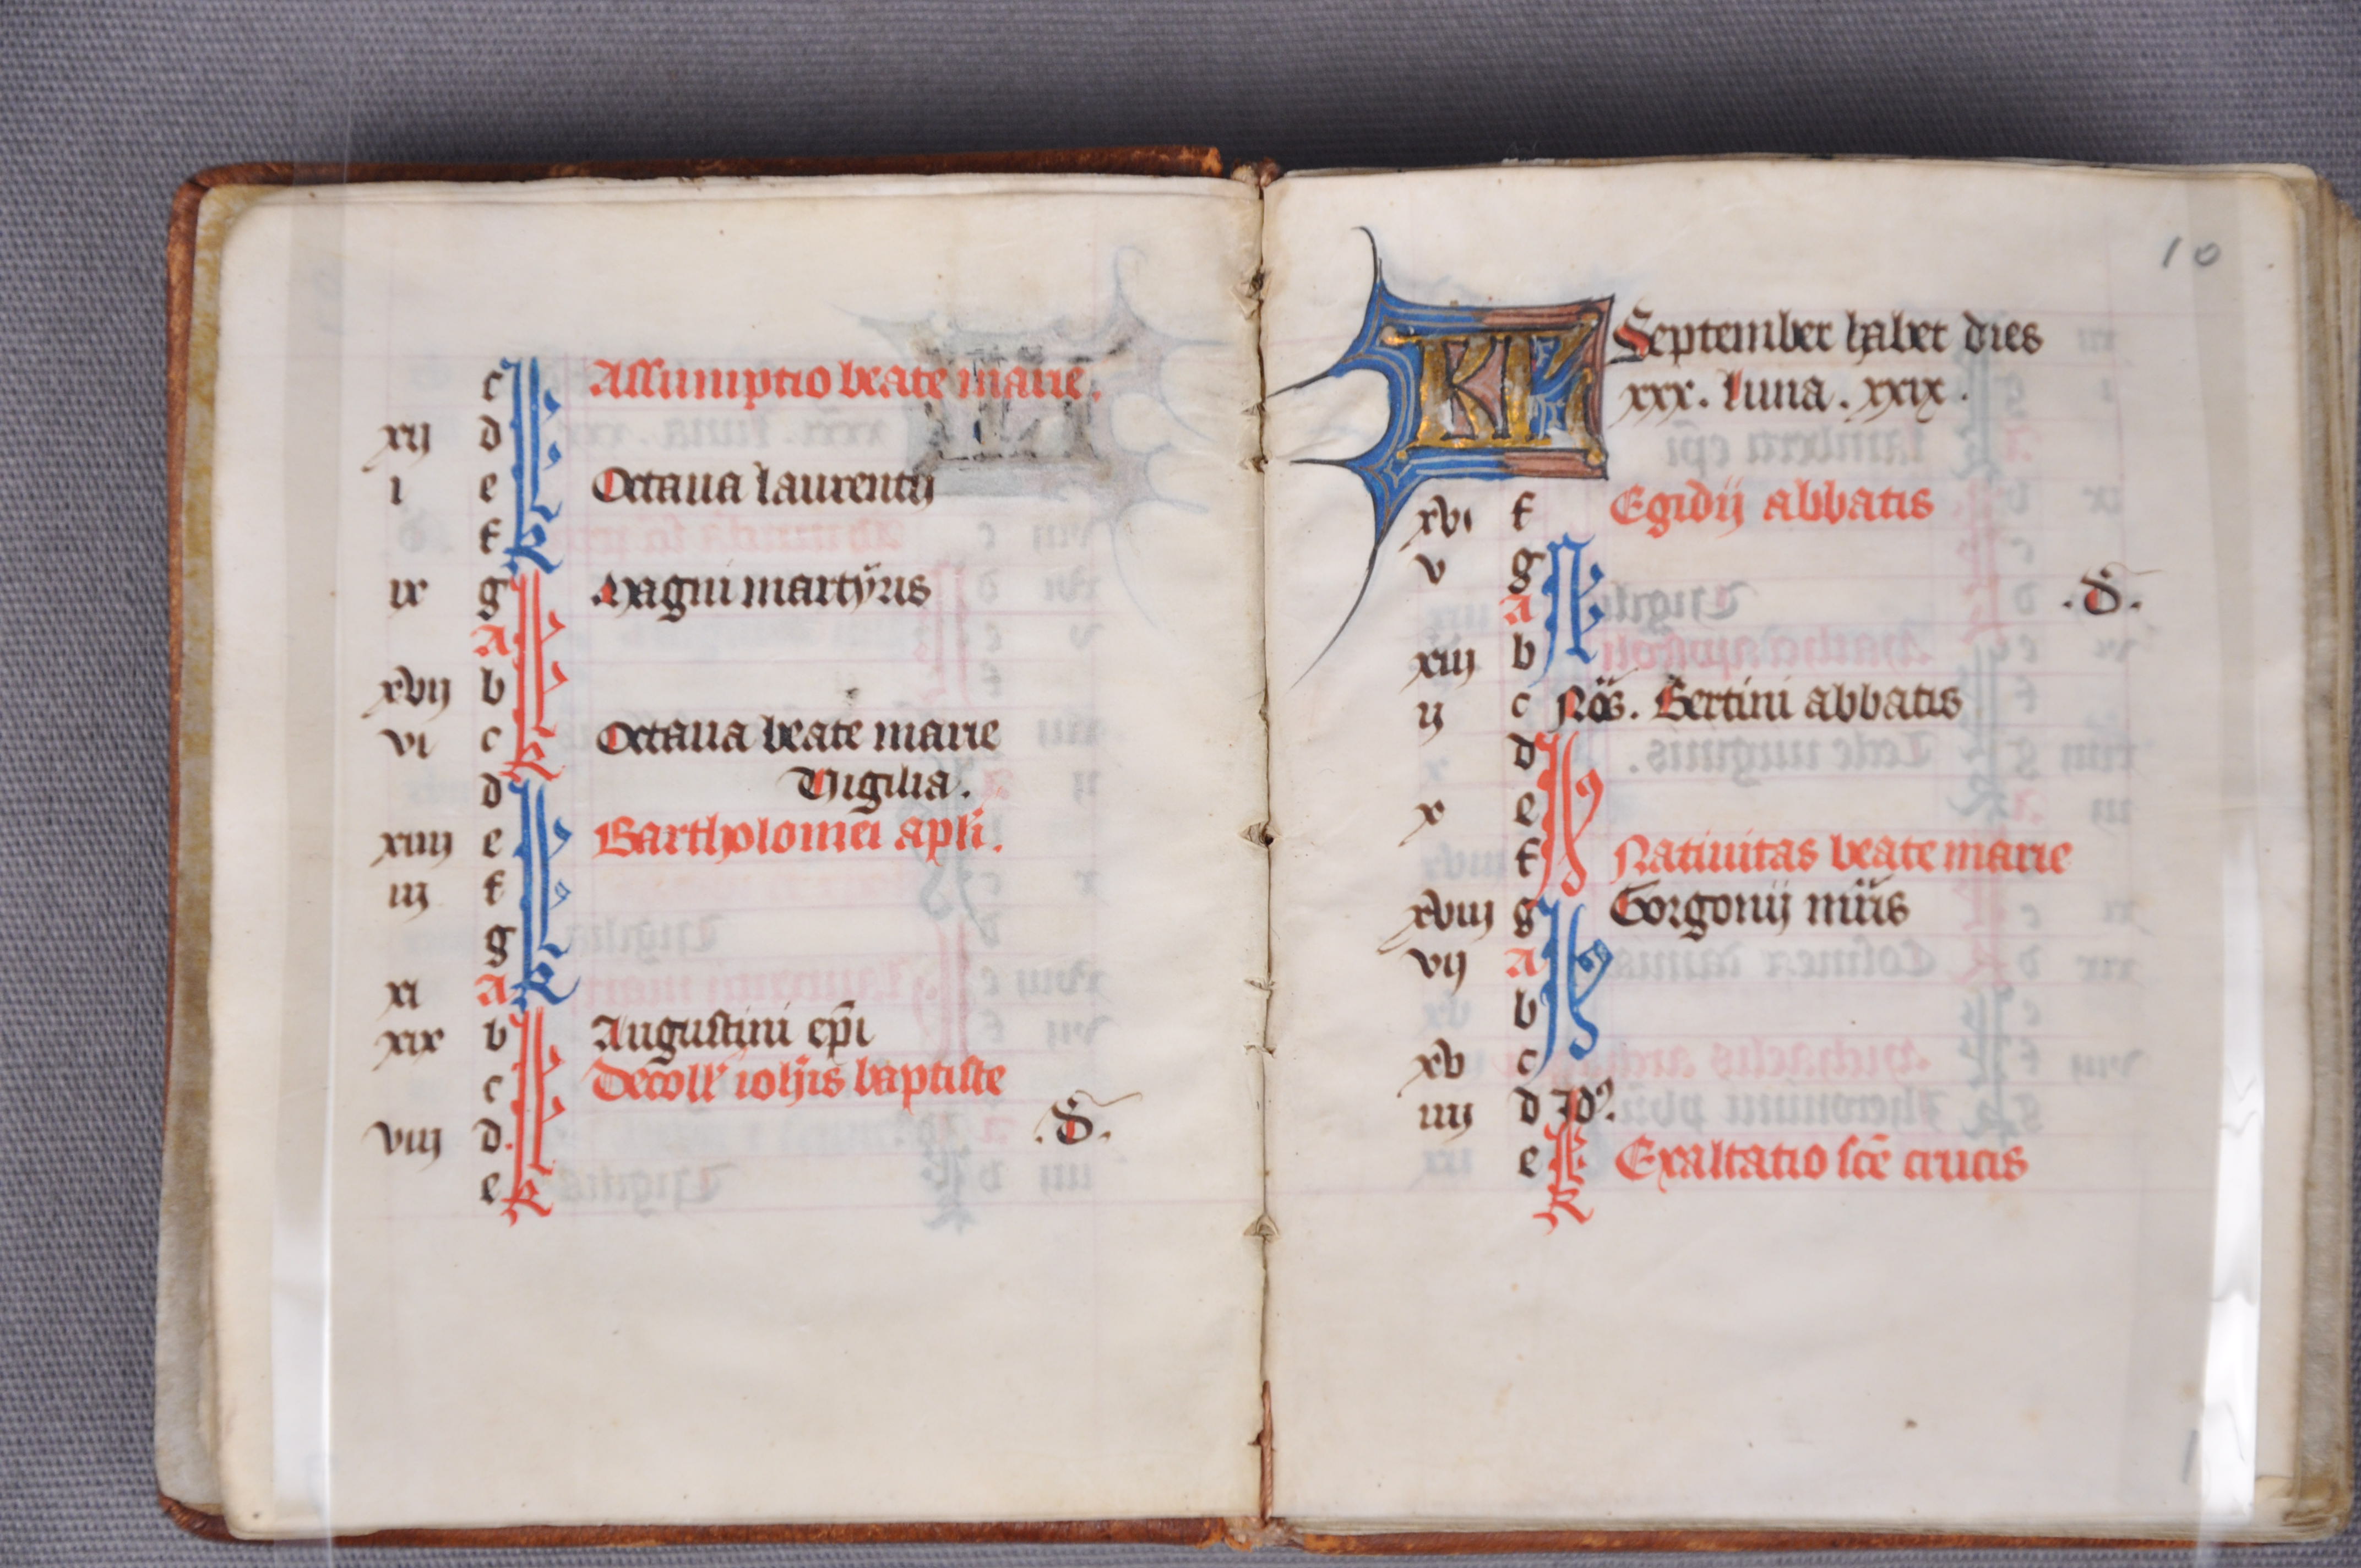 c Assumptio beate marie.
xij d
i e Octaua laurentij
f kl
ix g Magni martyris
A
xvij b
vi c kl Octaua beate marie
d Vigilia.
xiiij e Bartholomei apli.
iij f
g
xi A kl
xix b Augustini epi
c Decoll' iohis baptiste
viij d .D.
e kl
10
KL September habet dies
xxx. luna. xxix.
xvi f Egidij abbatis
v g
A .D.
xiij b
ij c Nōs. Bertini abbatis
d
x e
f Natiuitas beate marie
xviij g Gorgonij mris
vij A
b
xv c
iiij d Idꝰ.
e kl Exaltatio sce crucis